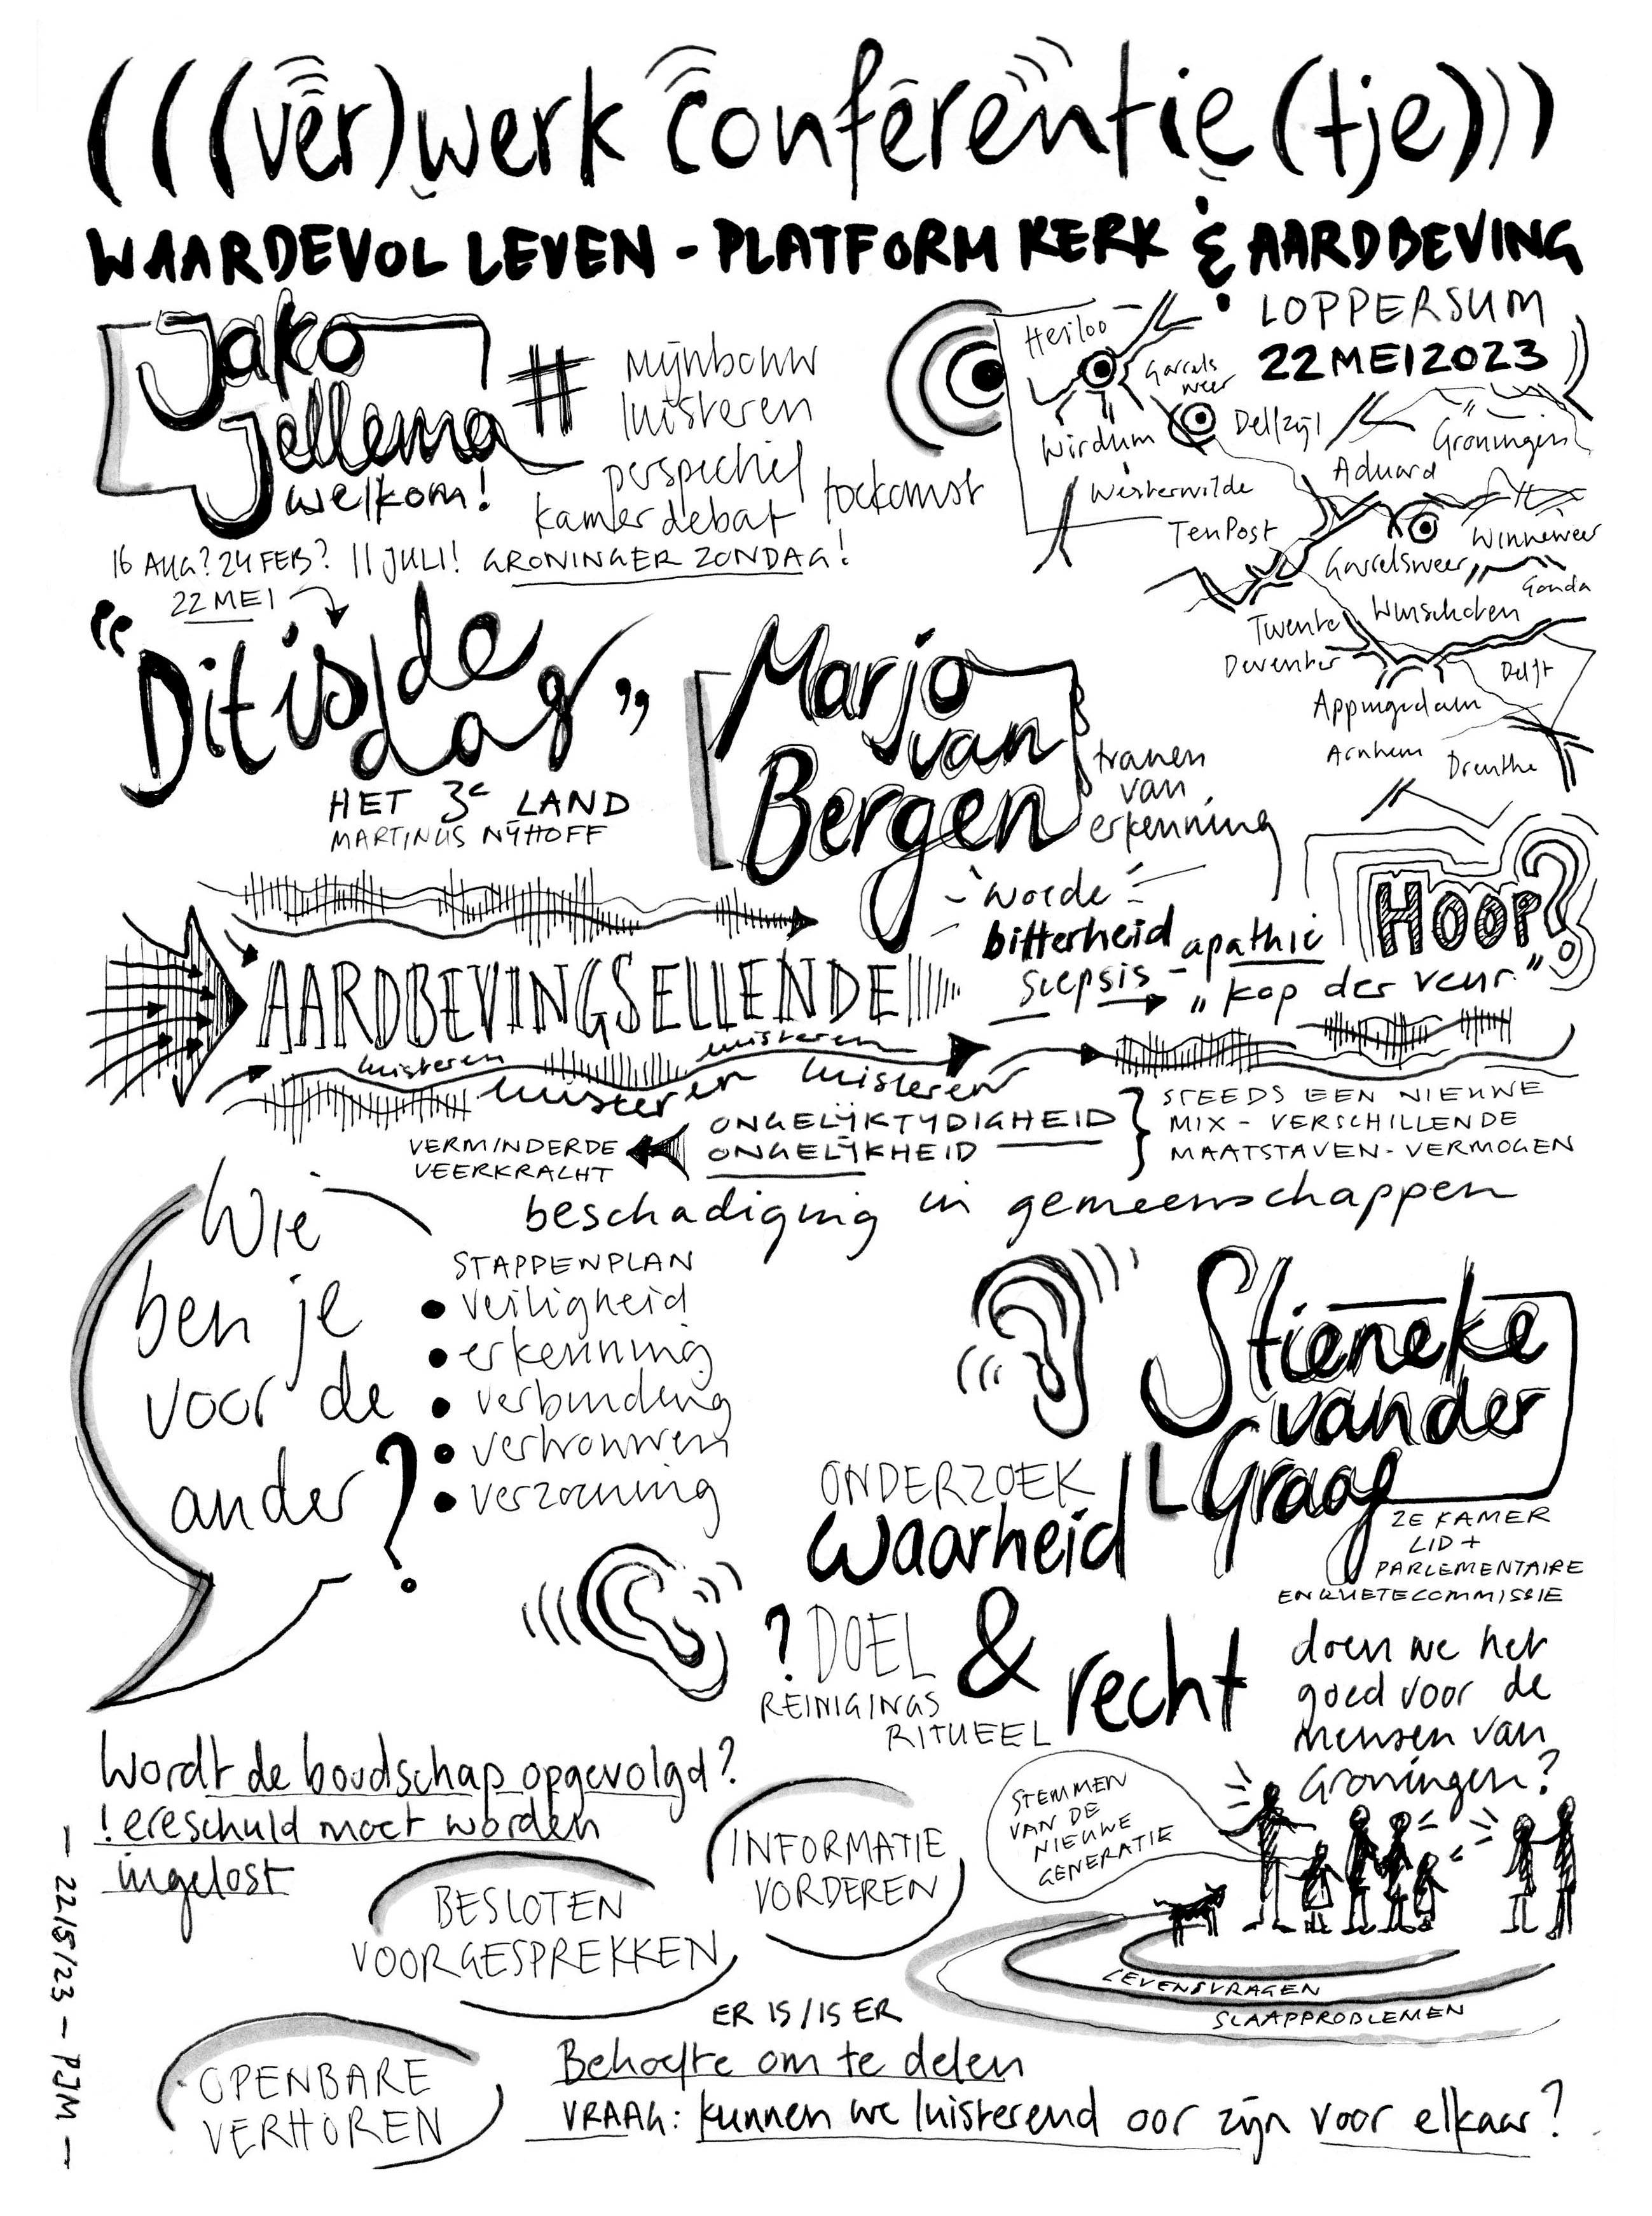 (((ver)werk conferentie(tje)))
WAARDEVOL LEVEN - PLATFORM KERK & AARDBEVING
LOPPERSUM
22 MEI 2023
Jako
Jellema
welkom!
#
mijnbouw
luisteren
perspectief
kamerdebat
toekomst
16 AUG? 24 FEB? 11 JULI! GRONINGER ZONDAG!
22 MEI
"Dit is de
dag"
HET 3e LAND
MARTINUS NIJHOFF
Heiloo
Garrels
weer
Wirdum
Delfzijl
Groningen
Aduard
Westerwilde
TenPost
Winneweer
Garrelsweer
Gouda
Winschoten
Twente
Deventer
Delft
Appingedam
Arnhem
Drenthe
Marjo
van
Bergen
tranen
van
erkenning
woede
bitterheid
apathie
scepsis - "kop der veur."
HOOP?
AARDBEVINGSELLENDE
luisteren
luisteren
luisteren
luisteren
ONGELIJKTYDIGHEID
ONGELIJKHEID
STEEDS EEN NIEUWE
MIX - VERSCHILLENDE
MAATSTAVEN - VERMOGEN
VERMINDERDE
VEERKRACHT
beschadiging in gemeenschappen
Wie
ben je
voor de
ander?
STAPPENPLAN
• veiligheid
• erkenning
• verbinding
• vertrouwen
• verzoening
Stieneke
van der
Graaf
2E KAMER
LID +
PARLEMENTAIRE
ENQUETECOMMISSIE
ONDERZOEK
waarheid
& recht
? DOEL
REINIGINGS
RITUEEL
doen we het
goed voor de
mensen van
Groningen?
Wordt de boodschap opgevolgd?
! ereschuld moet worden
ingelost
STEMMEN
VAN DE
NIEUWE
GENERATIE
INFORMATIE
VORDEREN
BESLOTEN
VOORGESPREKKEN
OPENBARE
VERHOREN
LEVENSVRAGEN
SLAAPPROBLEMEN
ER IS / IS ER
Behoefte om te delen
VRAAG: kunnen we luisterend oor zijn voor elkaar?
- 22/5/23 - PJM -